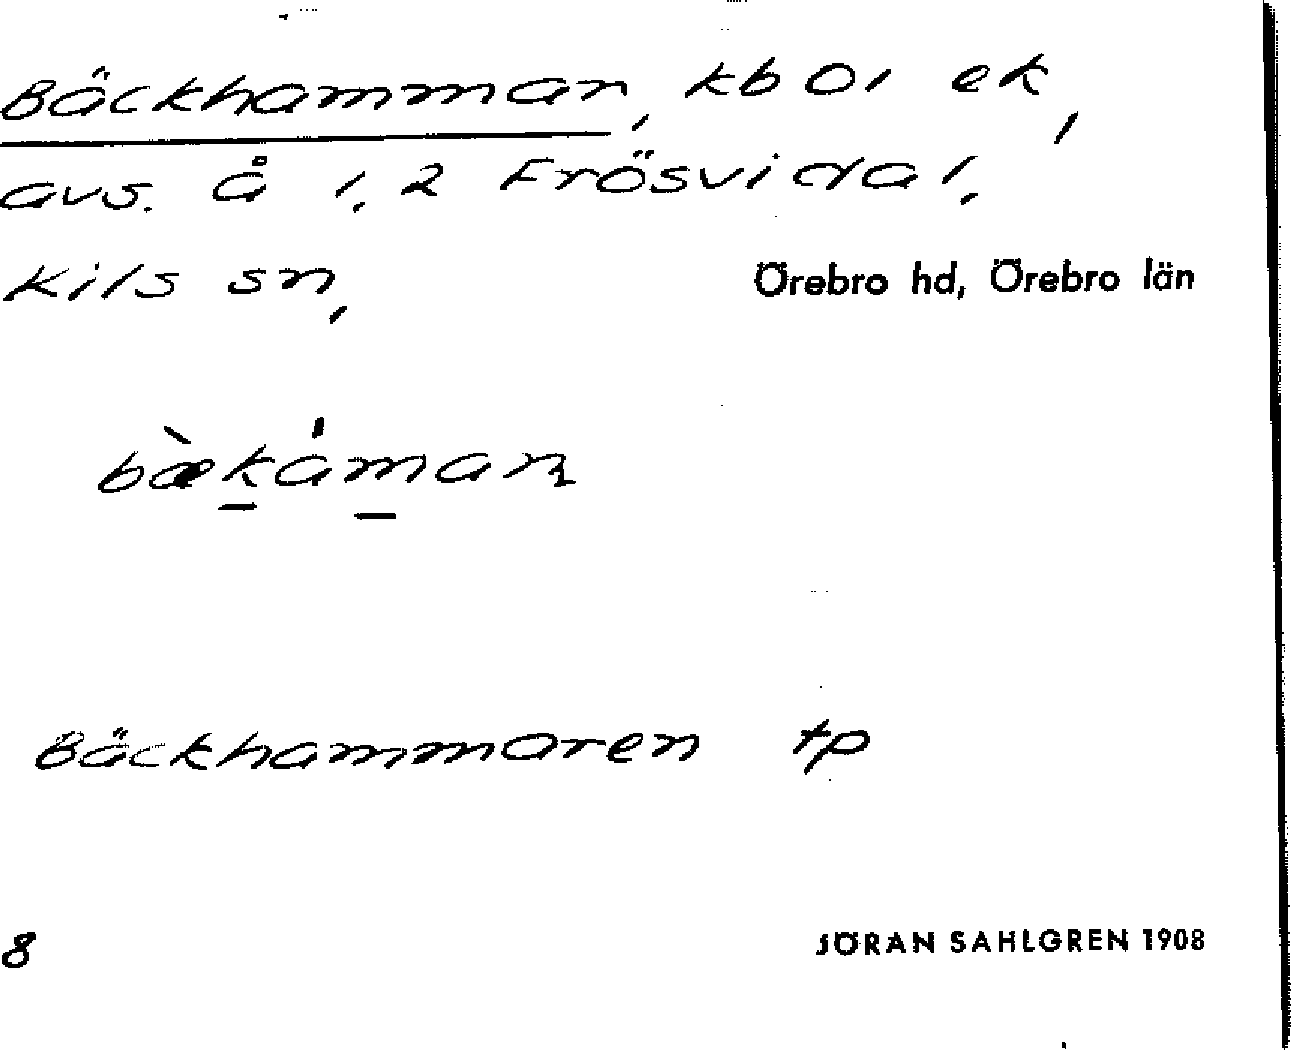 Bäckhammar, kb OI ek,
avs. å 1, 2 Frösvidal,
Kils sn,
Örebro hd, Örebro län
bæ̀kámaɳ
Bäckhammaren tp
8
JÖRAN SAHLGREN 1908